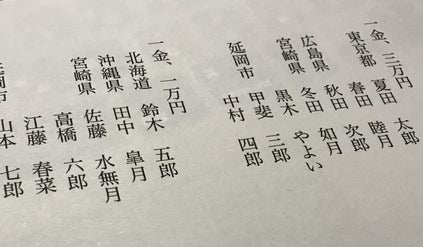 一金、三万円
東京都 夏田 太郎
春田 睦月
広島県 秋田 次郎
宮崎県 冬田 如月
黒木 やよい
延岡市 甲斐 三郎
中村 四郎
一金、一万円
北海道 鈴木 五郎
沖縄県 田中 皐月
宮崎県 佐藤 水無月
高橋 六郎
江藤 春菜
岡市 山本 七郎